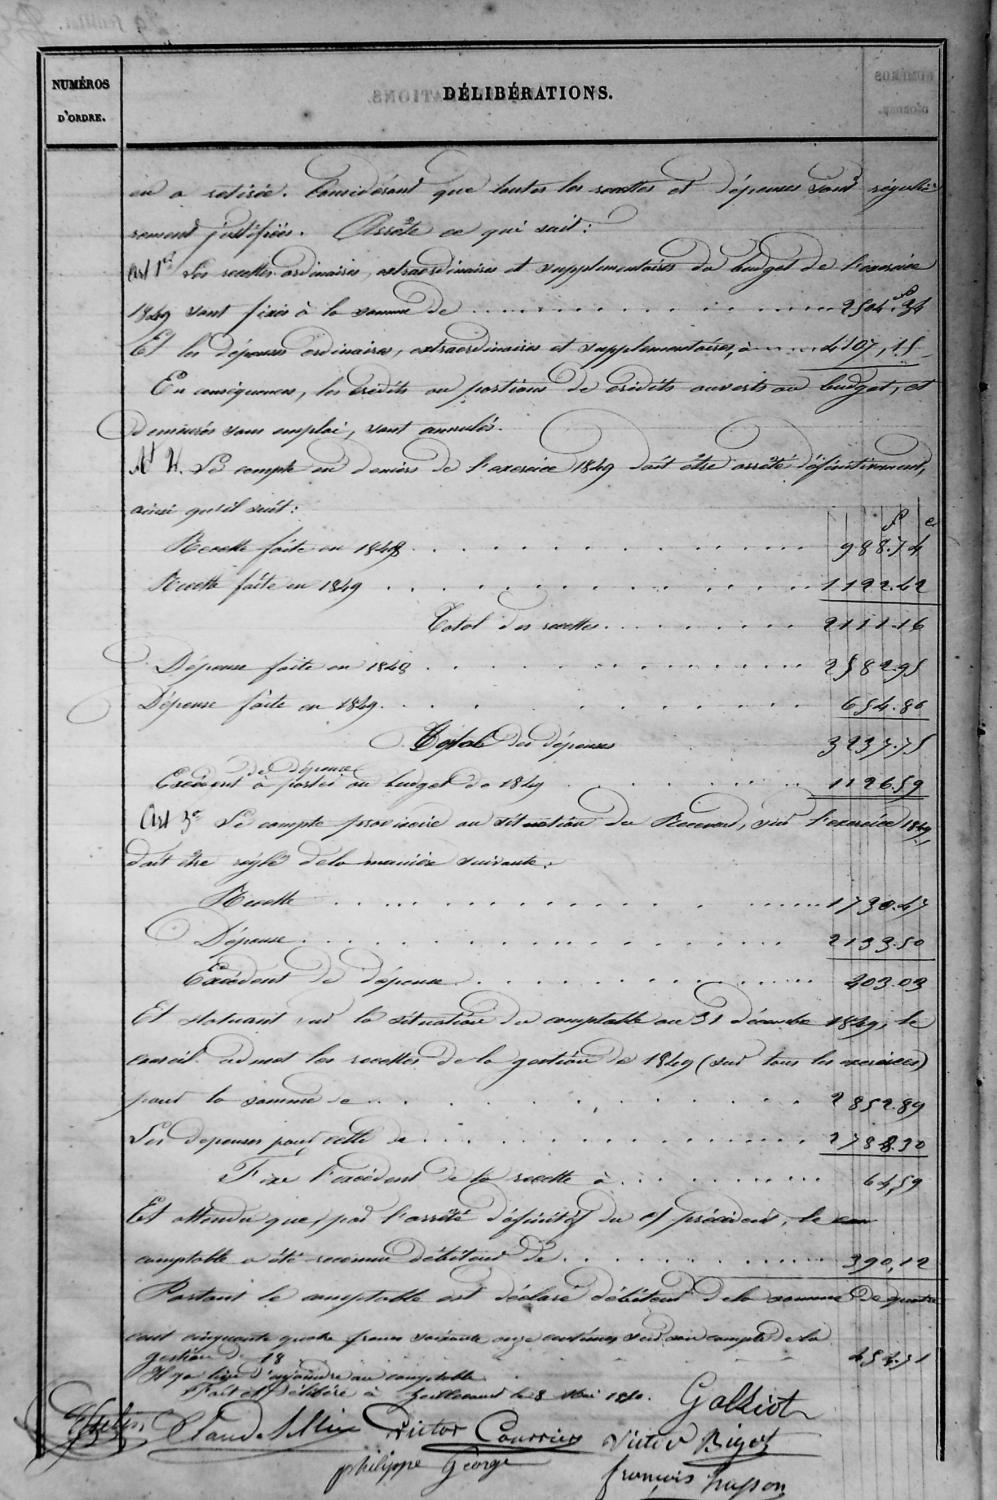 NUMÉROS
D'ORDRE.
DÉLIBÉRATIONS.
en a retirée. Considérant que toutes les recettes et dépenses sont réguliè-
rement justifiées. Arrête ce qui suit :
Art 1er Les recettes ordinaires, extraordinaires et supplementaires du budget de l'exercice
1849 sont fixés à la somme de 2504f.34
Et les dépenses ordinaires, extraordinaires et supplementaires, à 4107,15
En conséquence, les crédits ou portions de crédits ouverts au budget, et
demeurés sans emploi, sont annulés.
Art 2. Le compte en deniers de l'exercice 1849 doit être arrêté définitivement,
ainsi qu'il suit :
f c
Recette faite en 1848 988.74
Recette faite en 1849 1122.42
Total des recettes 2111.16
Dépense faite en 1848 2582.95
Dépense faite en 1849 654.80
Total des dépenses 3237.75
de dépense
Excédent à porter au budget de 1849 1126.59
Art 3e Le compte provisoire ou situation du Receveur, sur l'exercice 1849,
doit être réglé de la manière suivante :
Recette 1730.47
Dépense 2133.50
Excédent de dépense 403.03
Et statuant sur la situation du comptable au 31 décembre 1849, le
conseil admet les recettes de la gestion de 1849 (sur tous les exercices)
pour la somme de 2852.89
Les depenses pour celle de 2788.30
Fixe l'excédent de la recette à 64,59
Et attendu que, par l'arrêté définitif du précédent, le
comptable a été reconnu débiteur de 390,12
Partant le comptable est déclaré débiteur de la somme de quatre
cent cinquante quatre francs soixante onze centimes sur son compte de la
gestion de 18 454.71
Il y a lieu d'enjoindre au comptable
Fait et délibéré à le 8 Mai 1850.
Galliot
Claude Victor Courrier Victor Bigot
philippe George françois husson